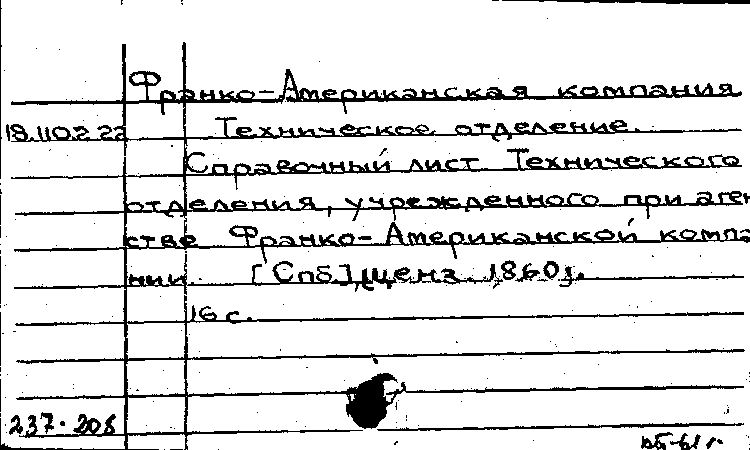 Франко-Американская компания
18.110.2.22 Техническое отделение.
Справочный лист Технического
отделения, учрежденного при аген
стве Франко-Американской компа
нии. [Спб], ценз. 1860.
16 с.
237.208